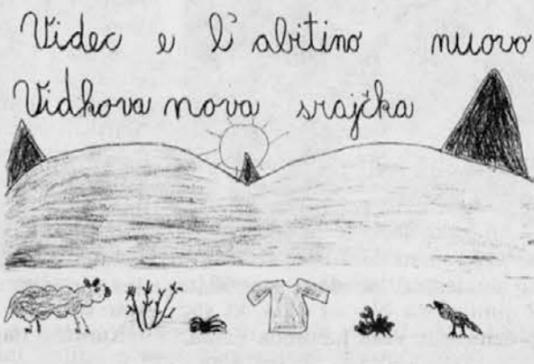 Videc e l'abitino nuovo
Vidkova nova srajčka